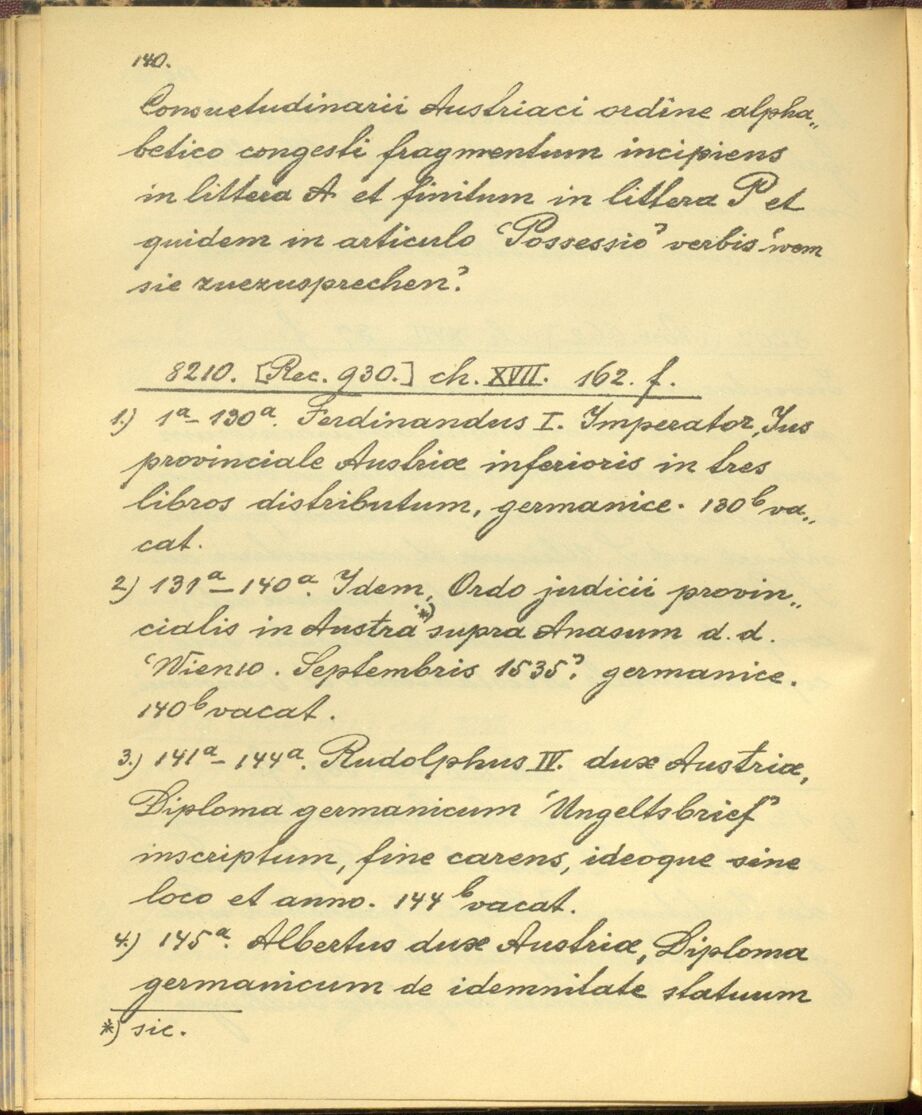 140.
Consuetudinarii Austriaci ordine alpha„
betico congesti fragmentum incipiens
in littera A et finitum in littera P et
quidem in articulo ‘Possessio’ verbis ‘wem
sie zuezusprechen’.
8210. [Rec. 930.] ch. XVII. 162. f.
1.) 1ᵃ– 130ᵃ. Ferdinandus I. Imperator, Jus
provinciale Austriæ inferioris in tres
libros distributum, germanice. 130ᵇ va„
cat.
2.) 131ᵃ–140ᵃ. Idem, Ordo judicii provin„
cialis in Austra *) supra Anasum d. d.
‘Wien 10. Septembris 1535’. germanice.
140ᵇ vacat.
3.) 141ᵃ– 144ᵃ. Rudolphus IV. dux Austriæ,
Diploma germanicum ‘Ungeltsbrief’
inscriptum, fine carens, ideoque sine
loco et anno. 144ᵇ vacat.
4.) 145ᵃ. Albertus dux Austriæ, Diploma
germanicum de idemnitate statuum
*) sic.